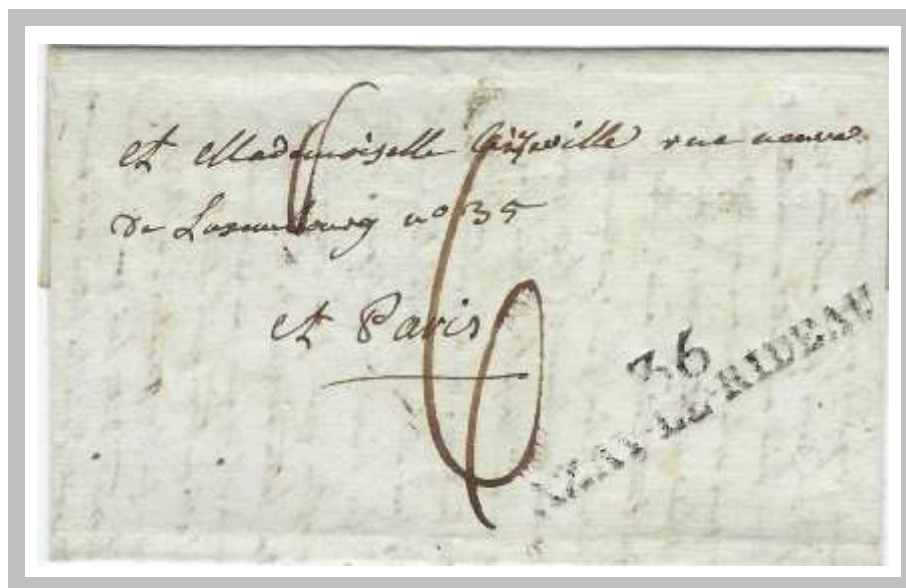 A Mademoiselle rue neuve
De Luxembourg no 35
A Paris
6
36
AZAY-LE-RIDEAU